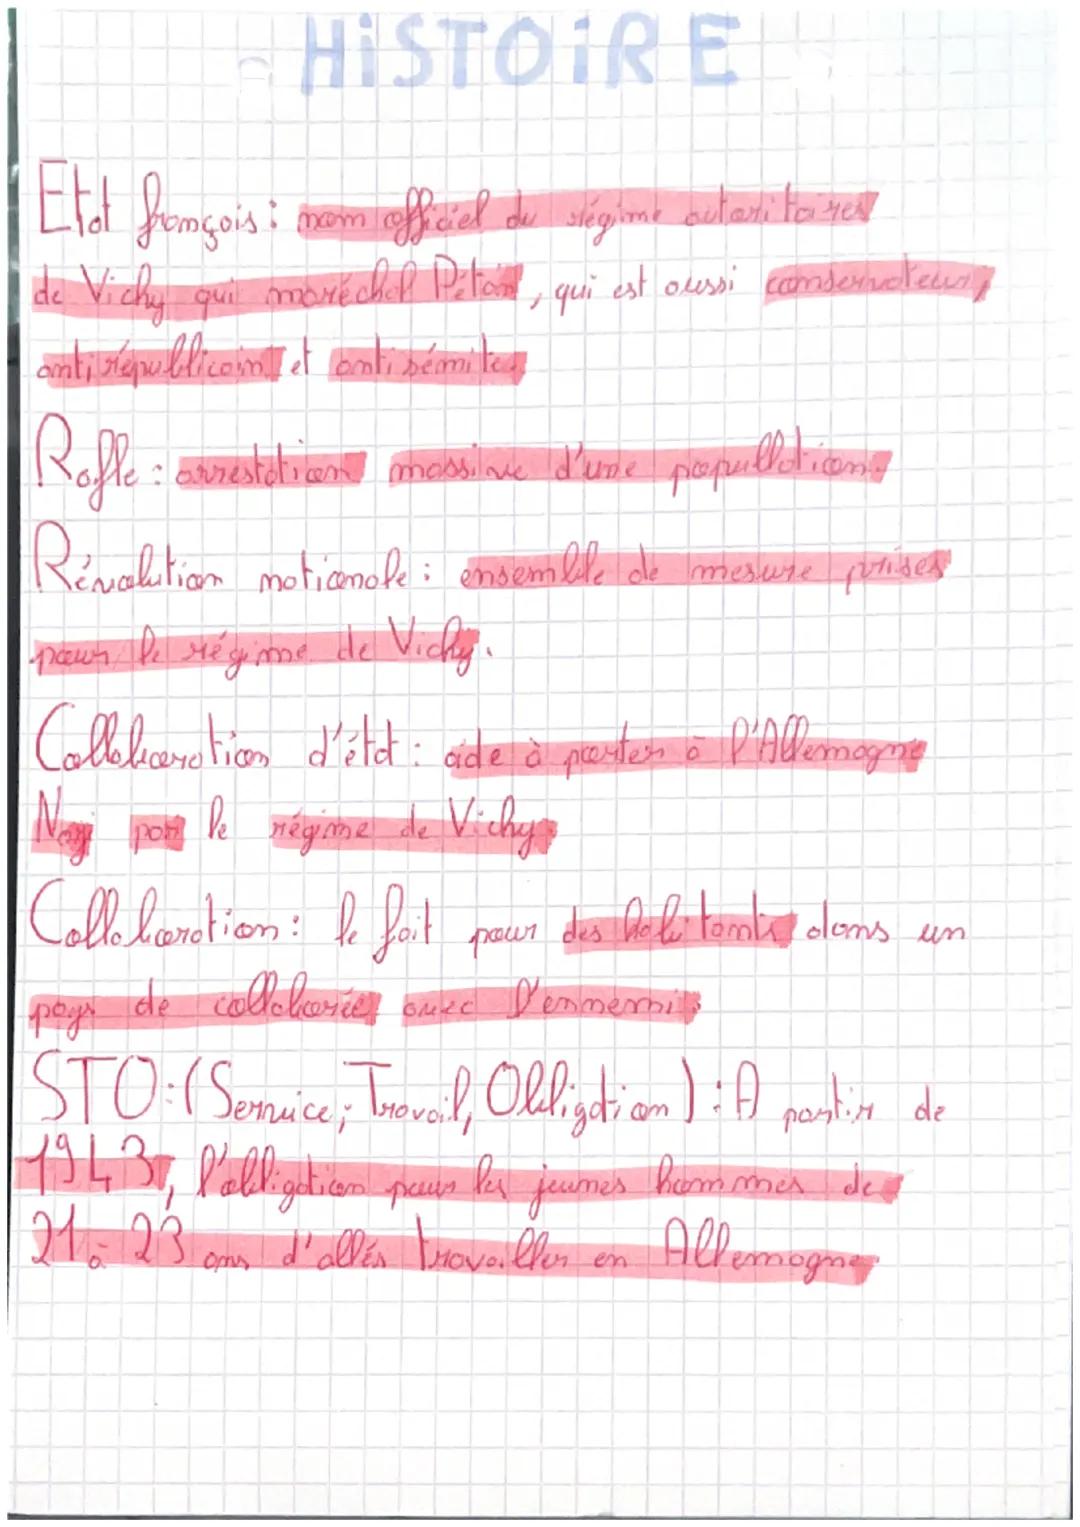 HiSTOiRE
Etat français : nom officiel du régime autoritaires
de Vichy qui maréchal Pétain, qui est aussi conservateur,
antirépublicain et antisémite,
Rafle : arrestation massive d'une popullation.
Révolution nationale : ensemble de mesure prises
pour le régime de Vichy.
Collaboration d'état : aide à porter à l'Allemagne
Nazi par le régime de Vichy.
Collaboration : le fait pour des habitants dans un
pays de collaborée avec l'ennemni.
STO : (Service, Travail, Obligation) : A partir de
1943, l'obligation pour les jeunes hommes de
21 à 23 ans d'allés travailler en Allemagne.